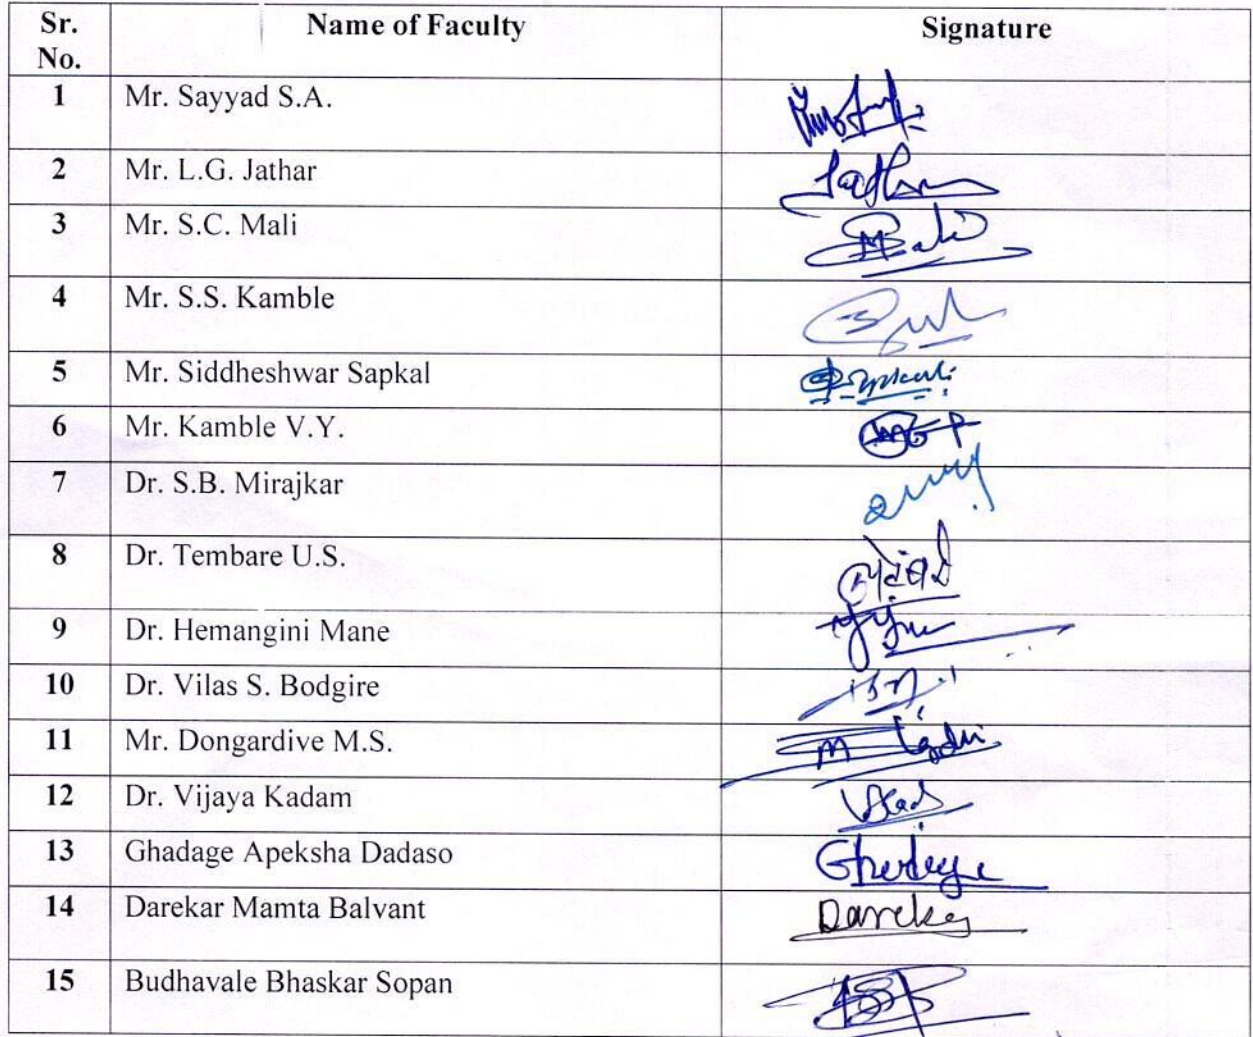 Sr. No. Name of Faculty Signature
1 Mr. Sayyad S.A.
2 Mr. L.G. Jathar
3 Mr. S.C. Mali
4 Mr. S.S. Kamble
5 Mr. Siddheshwar Sapkal
6 Mr. Kamble V.Y.
7 Dr. S.B. Mirajkar
8 Dr. Tembare U.S.
9 Dr. Hemangini Mane
10 Dr. Vilas S. Bodgire
11 Mr. Dongardive M.S.
12 Dr. Vijaya Kadam
13 Ghadage Apeksha Dadaso
14 Darekar Mamta Balvant
15 Budhavale Bhaskar Sopan